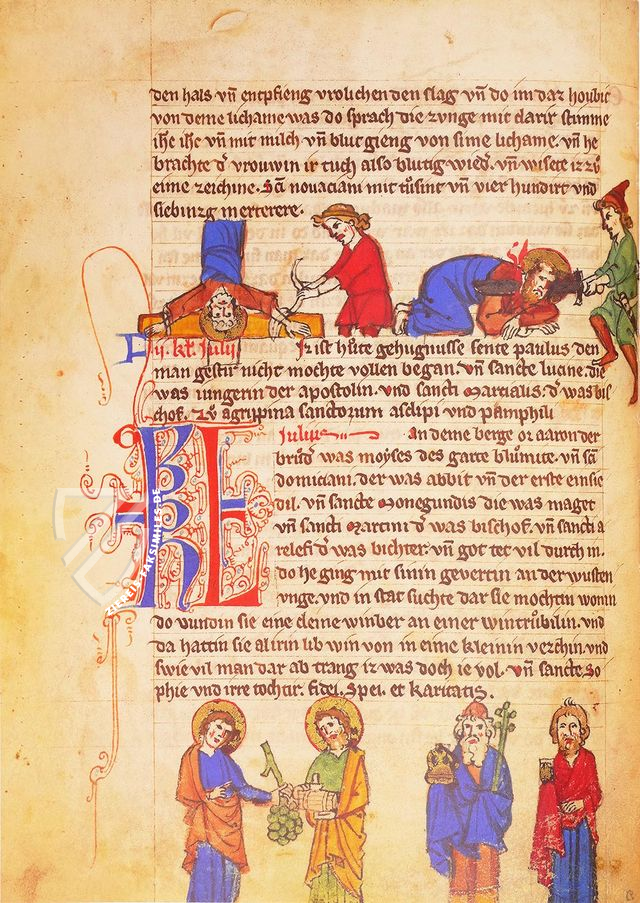 den hals vn̄ entpfieng vrolichen den slag vn̄ do im daz houbit
von deme lichame was do sprach die zvnge mit clarir stimme
ihc ihc vn̄ mit milch vn̄ blut gieng von sime lichame. vn̄ he
brachte d' vrouwin ir tuch also blutig wied'. vn̄ wisete iz zv
eime zeichine. Sc̄i nouaciani mit tusint vn̄ vier hundirt vnd
siebinzg merterere.
ij. kł. Julij Iz ist hute gehugnisse sente paulus den
man gestir nicht mochte vollen began. vn̄ sancte lucine. die
was iungerin der apostolin. vnd sancti Marcialis. d' was bis
chof. zv agrippina sanctorum asclipi vnd pamphili
KL Julius An deme berge or aaron der
brud' was moyses des garte blumite. vn̄ sc̄i
domiciani. der was abbit vn̄ der erste einsie
dil. vn̄ sancte Monegundis die was maget
vn̄ sancti Martini d' was bischof. vn̄ sancti a
relefi d' was bichter. vn̄ got tet vil durch in.
do he ging mit sinin gevertin an der wusten
vnge. vnd in stat suchte dar sie mochtin wonin
do vundin sie eine cleine winber an einer wintrubilin. vnd
da hattin sie alirin lib win von in eime kleinin vezchin. vnd
swie vil man dar ab trang iz was doch ie vol. vn̄ sancte. So
phie vnd irre tochtir. fidei. Spei. et Karitatis.
ZIEREIS-FAKSIMILES.DE